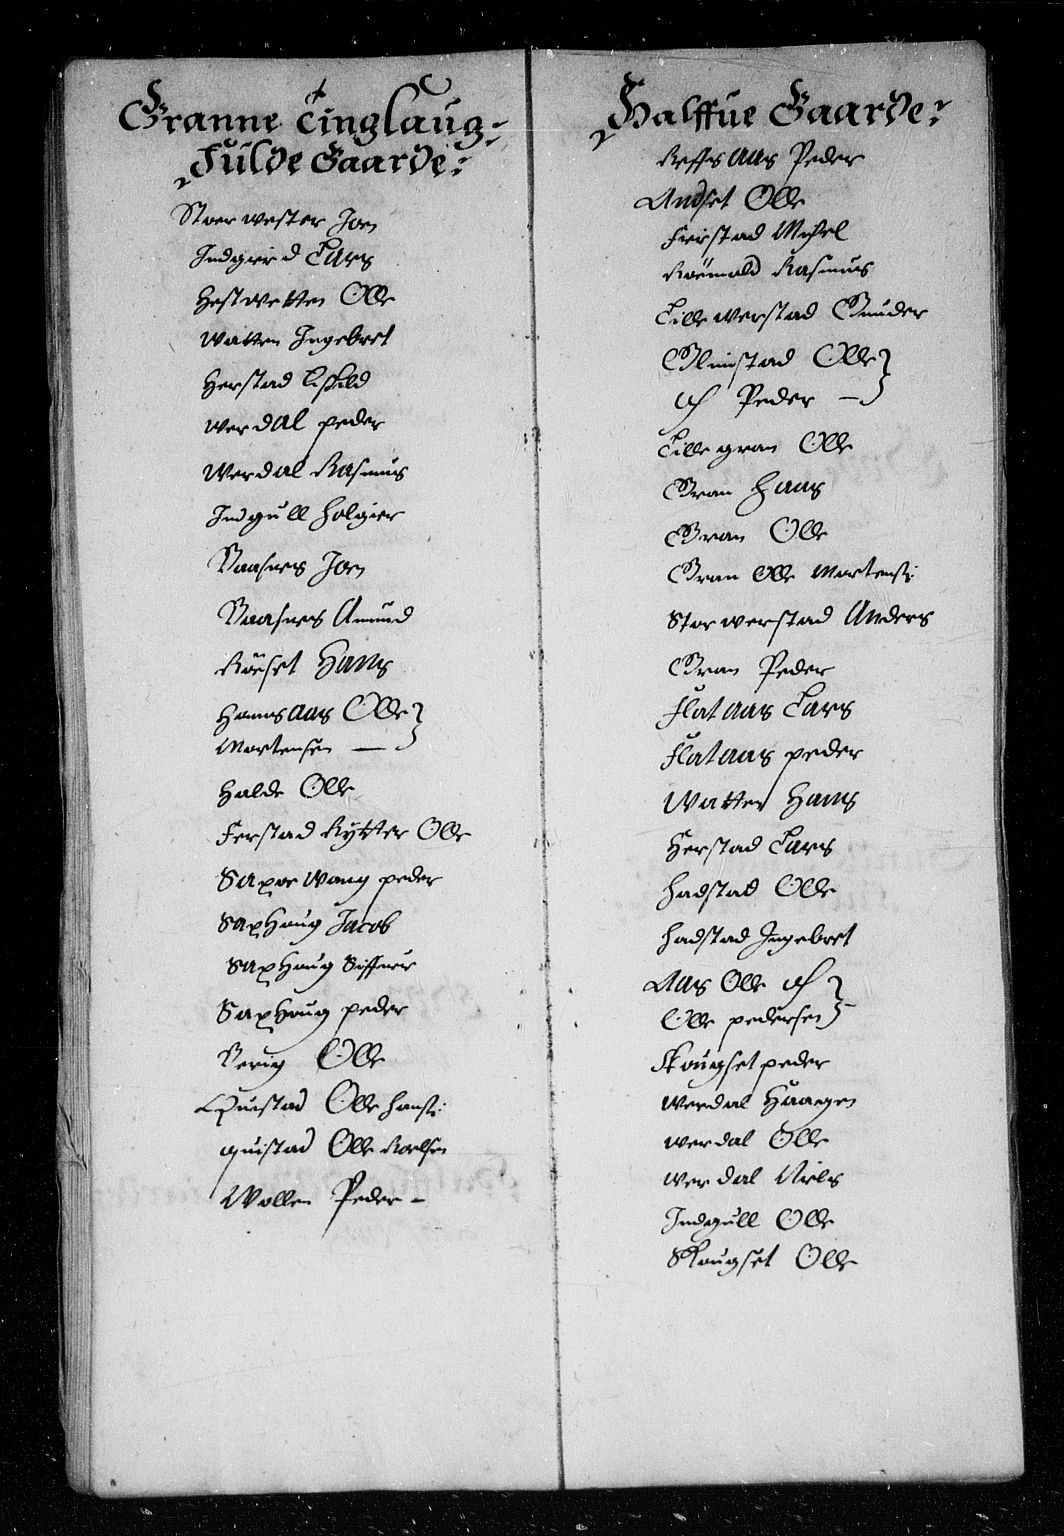 Granne Tinglaug
Fulde Gaarde:
Stoer wester Joen
Indgierd Lars
Hestwetten Olle
Watten Ingebret
Herstad Eskild
Werdal peder
Werdal Rasmus
Indgull Holgier
Naasnes Joen
Naasnes Amund
Röeset Hans
Hammsaas Olle
Mortensen —
Halde Olle
Ferstad Rytter Olle
Saxe Wang peder
Saxhaug Jacob
Saxhaug Siffuer
Saxhaug peder
Nerig Olle
Quistad Olle Hansß:
quistad Olle Roelsen
Wollen Peder —
Halffue Gaarde:
Reffsaas Peder
Andset Olle
Ferstad Michel
Röemald Rasmus
Lille werstad Gunder
Glimstad Olle
och Peder —
Lille gran Olle
Gran Hans
Gran Olle
Gran Olle Mortensß:
Stor werstad Anders
Gran Peder
Flataas Lars
Flataas peder
Watten Hans
Herstad Lars
Hadstad Olle
Hadstad Ingebret
Aas Olle och
Olle pedersen
Skougset peder
Werdal Haagen
Werdal Olle
Werdal Niels
Indgull Olle
Skougset Olle